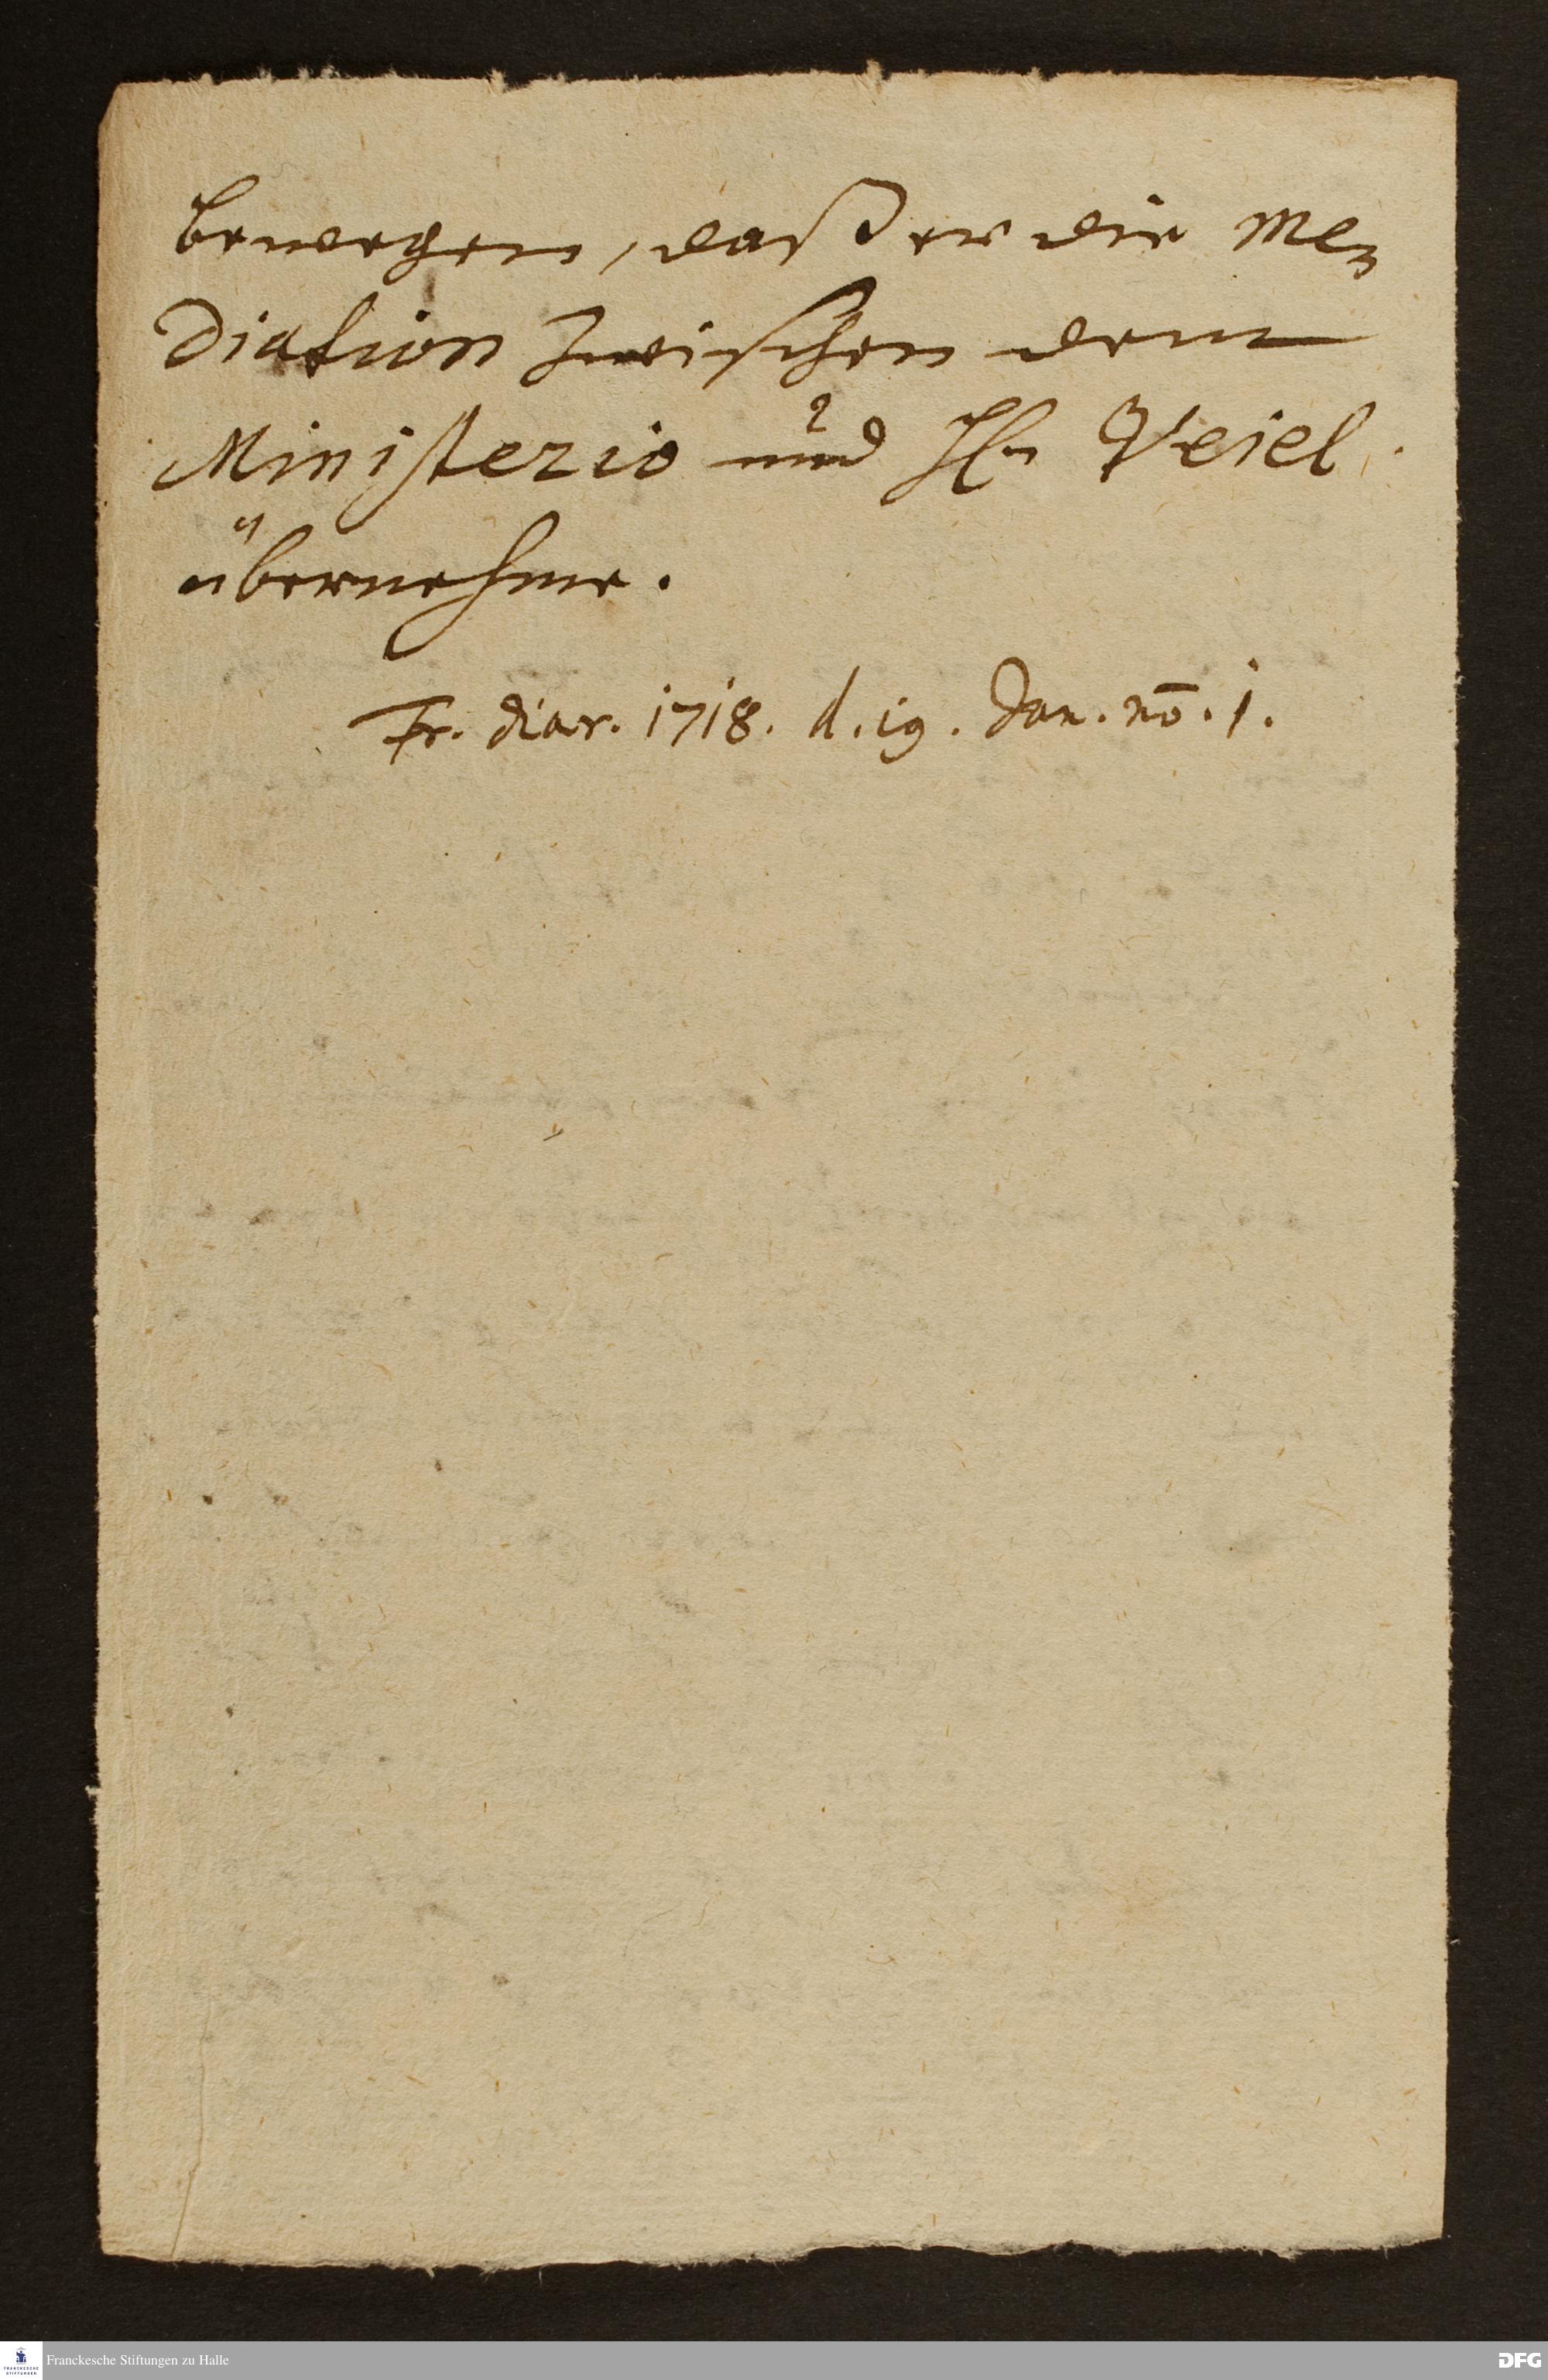 bewegen, daß er die Me-
diation zwischen dem
Ministerio und H. Veiel
übernehme.
Fr. diar. 1718. d. 19. Jan. no. 1.
Franckesche Stiftungen zu Halle
FRANCKESCHE
STIFTUNGEN
DFG